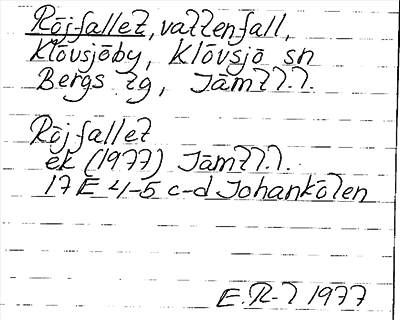 Röjfallet, vattenfall,
Klövsjöby, Klövsjö sn
Bergs tg, Jämtl.l.
Röjfallet
ek (1977) Jämtl.l.
17E 4-5 c-d Johankölen
E.R-l 1977